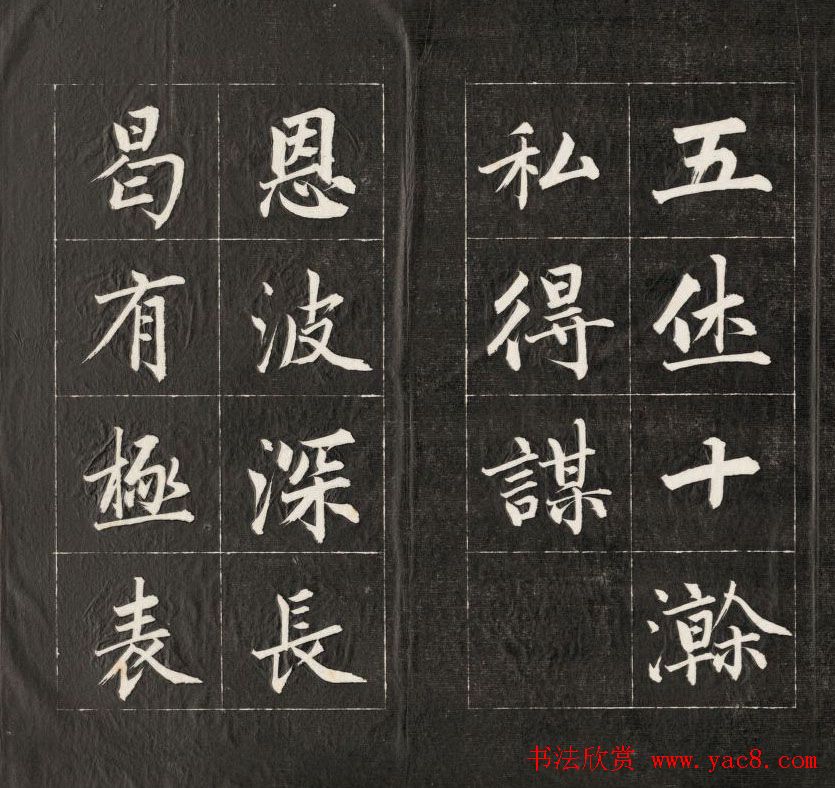 五休十澣
私得謀
恩波深長
曷有極表
书法欣赏 www.yac8.com